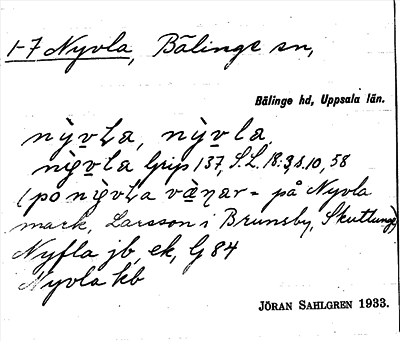 1-7 Nyvla, Bälinge sn,
Bälinge hd, Uppsala län.
nỳv̲Ⱡa, nỳv̲la,
nỳv̲la Grip 157, S.L. 18:3, s.10, 58
(po nỳv̲Ⱡa væ̲ŋar = på Nyvla
mark, Larsson i Brunsby, Skuttunge)
Nyfla jb, ek, G 84
Nyvla kb
JÖRAN SAHLGREN 1933.